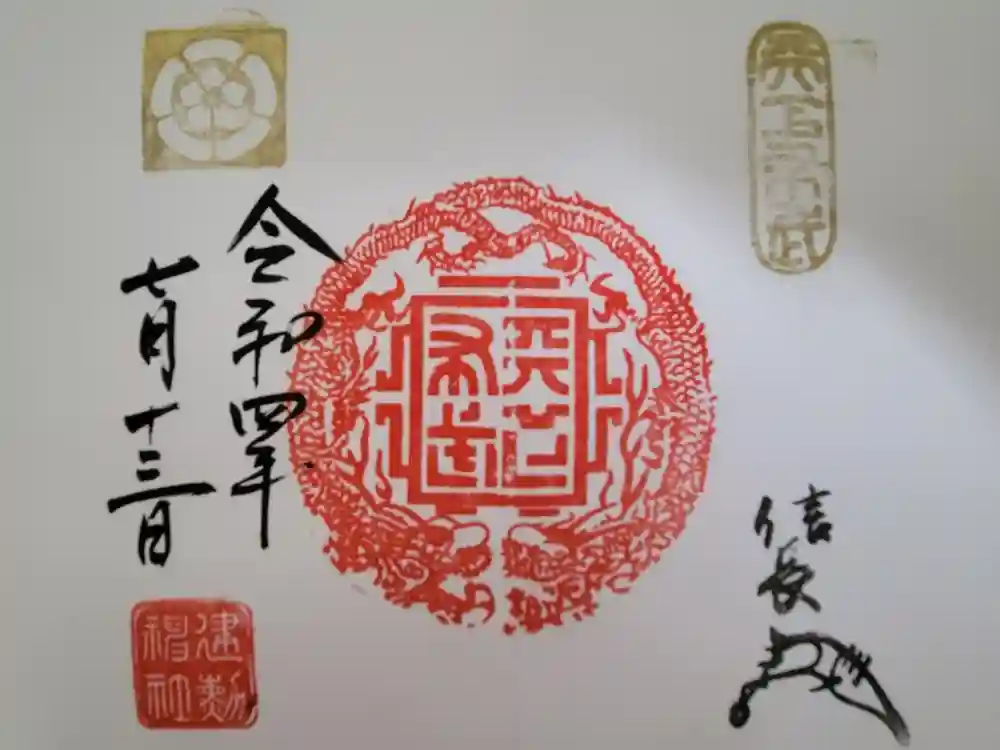 天下布武
天下布武
信長
令和四年
七月十三日
建勲神社